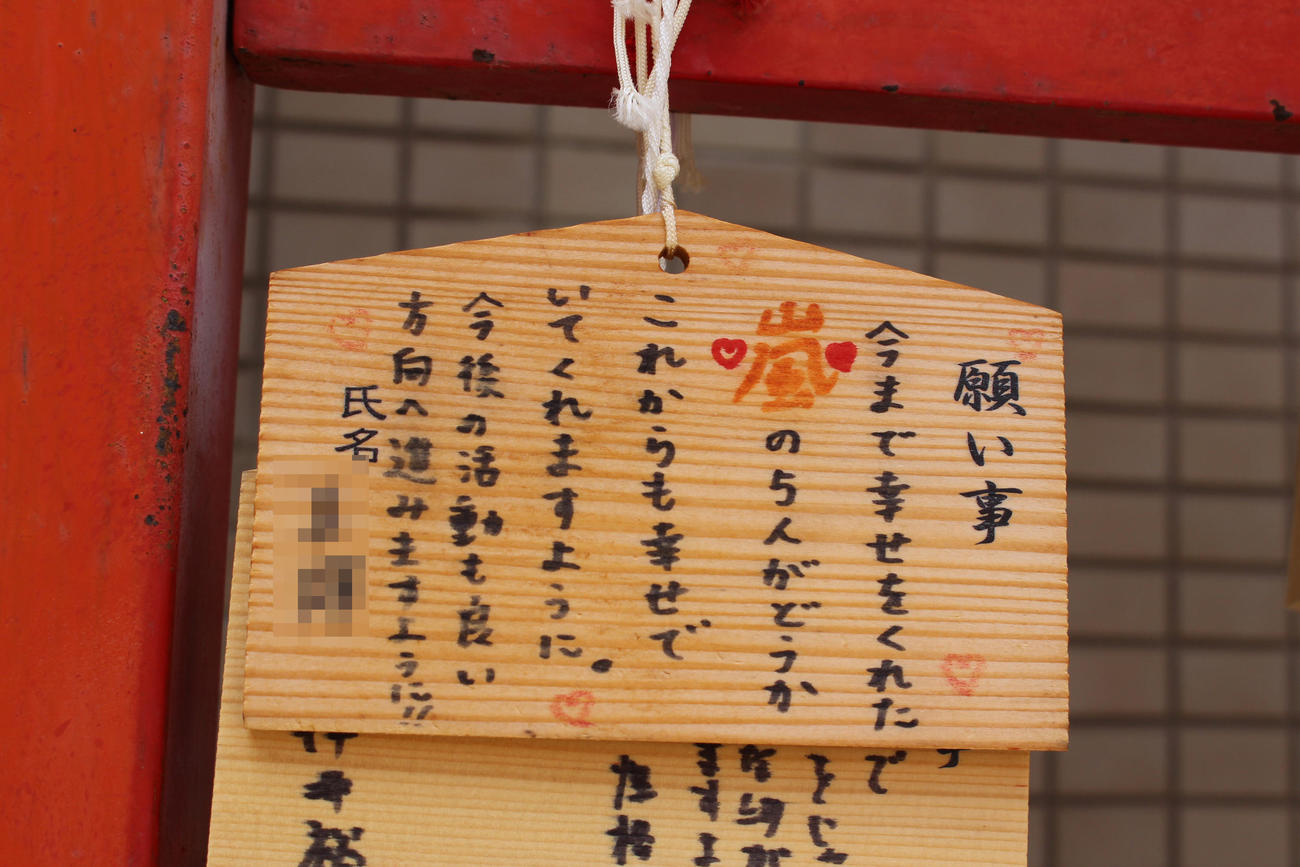 願い事
今まで幸せをくれた
嵐の5人がどうか
これからも幸せで
いてくれますように。
今後の活動も良い
方向へ進みますように!!
氏名
で
ますよ